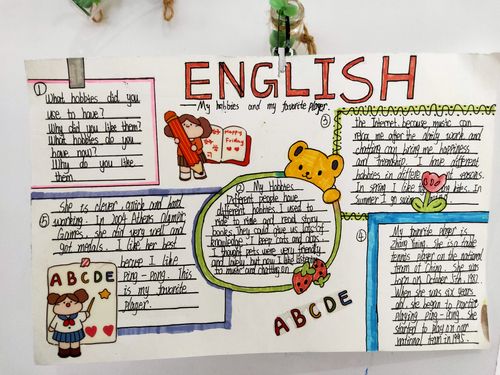 ENGLISH
—My hobbies and my favorite player.
①
What hobbies did you
use to have?
Why did you like them?
What hobbies do you
have now?
Why do you like
them
Happy
Friday
② My Hobbies
Different people have
different hobbies. I used to
ride to ride and read story
books. They could give us lots of
knowledge. I keep cats and dogs
I thought pets were very friendly
and lovely. But now I like listening
to music and chatting on
③
the Internet, because music can
relax me after the daily work and
chatting can bring me happiness
and friendship. I have different
hobbies in different seasons.
In spring I like
In summer I
④
My favorite player is
Zhang Yining. She is a
tennis player on the national
team of China. She was
born on October 5th, 1981.
When she was six years
old, she began to practice
playing ping-pong. She
started to play on our
national team in 1993.
⑤
She is clever, quick and hard
working. In 2004 Athens Olympic
Games she did very well and
got medals. I like her best
because I like
ping-pong. This
is my favorite
player.
ABCDE
ABCDE